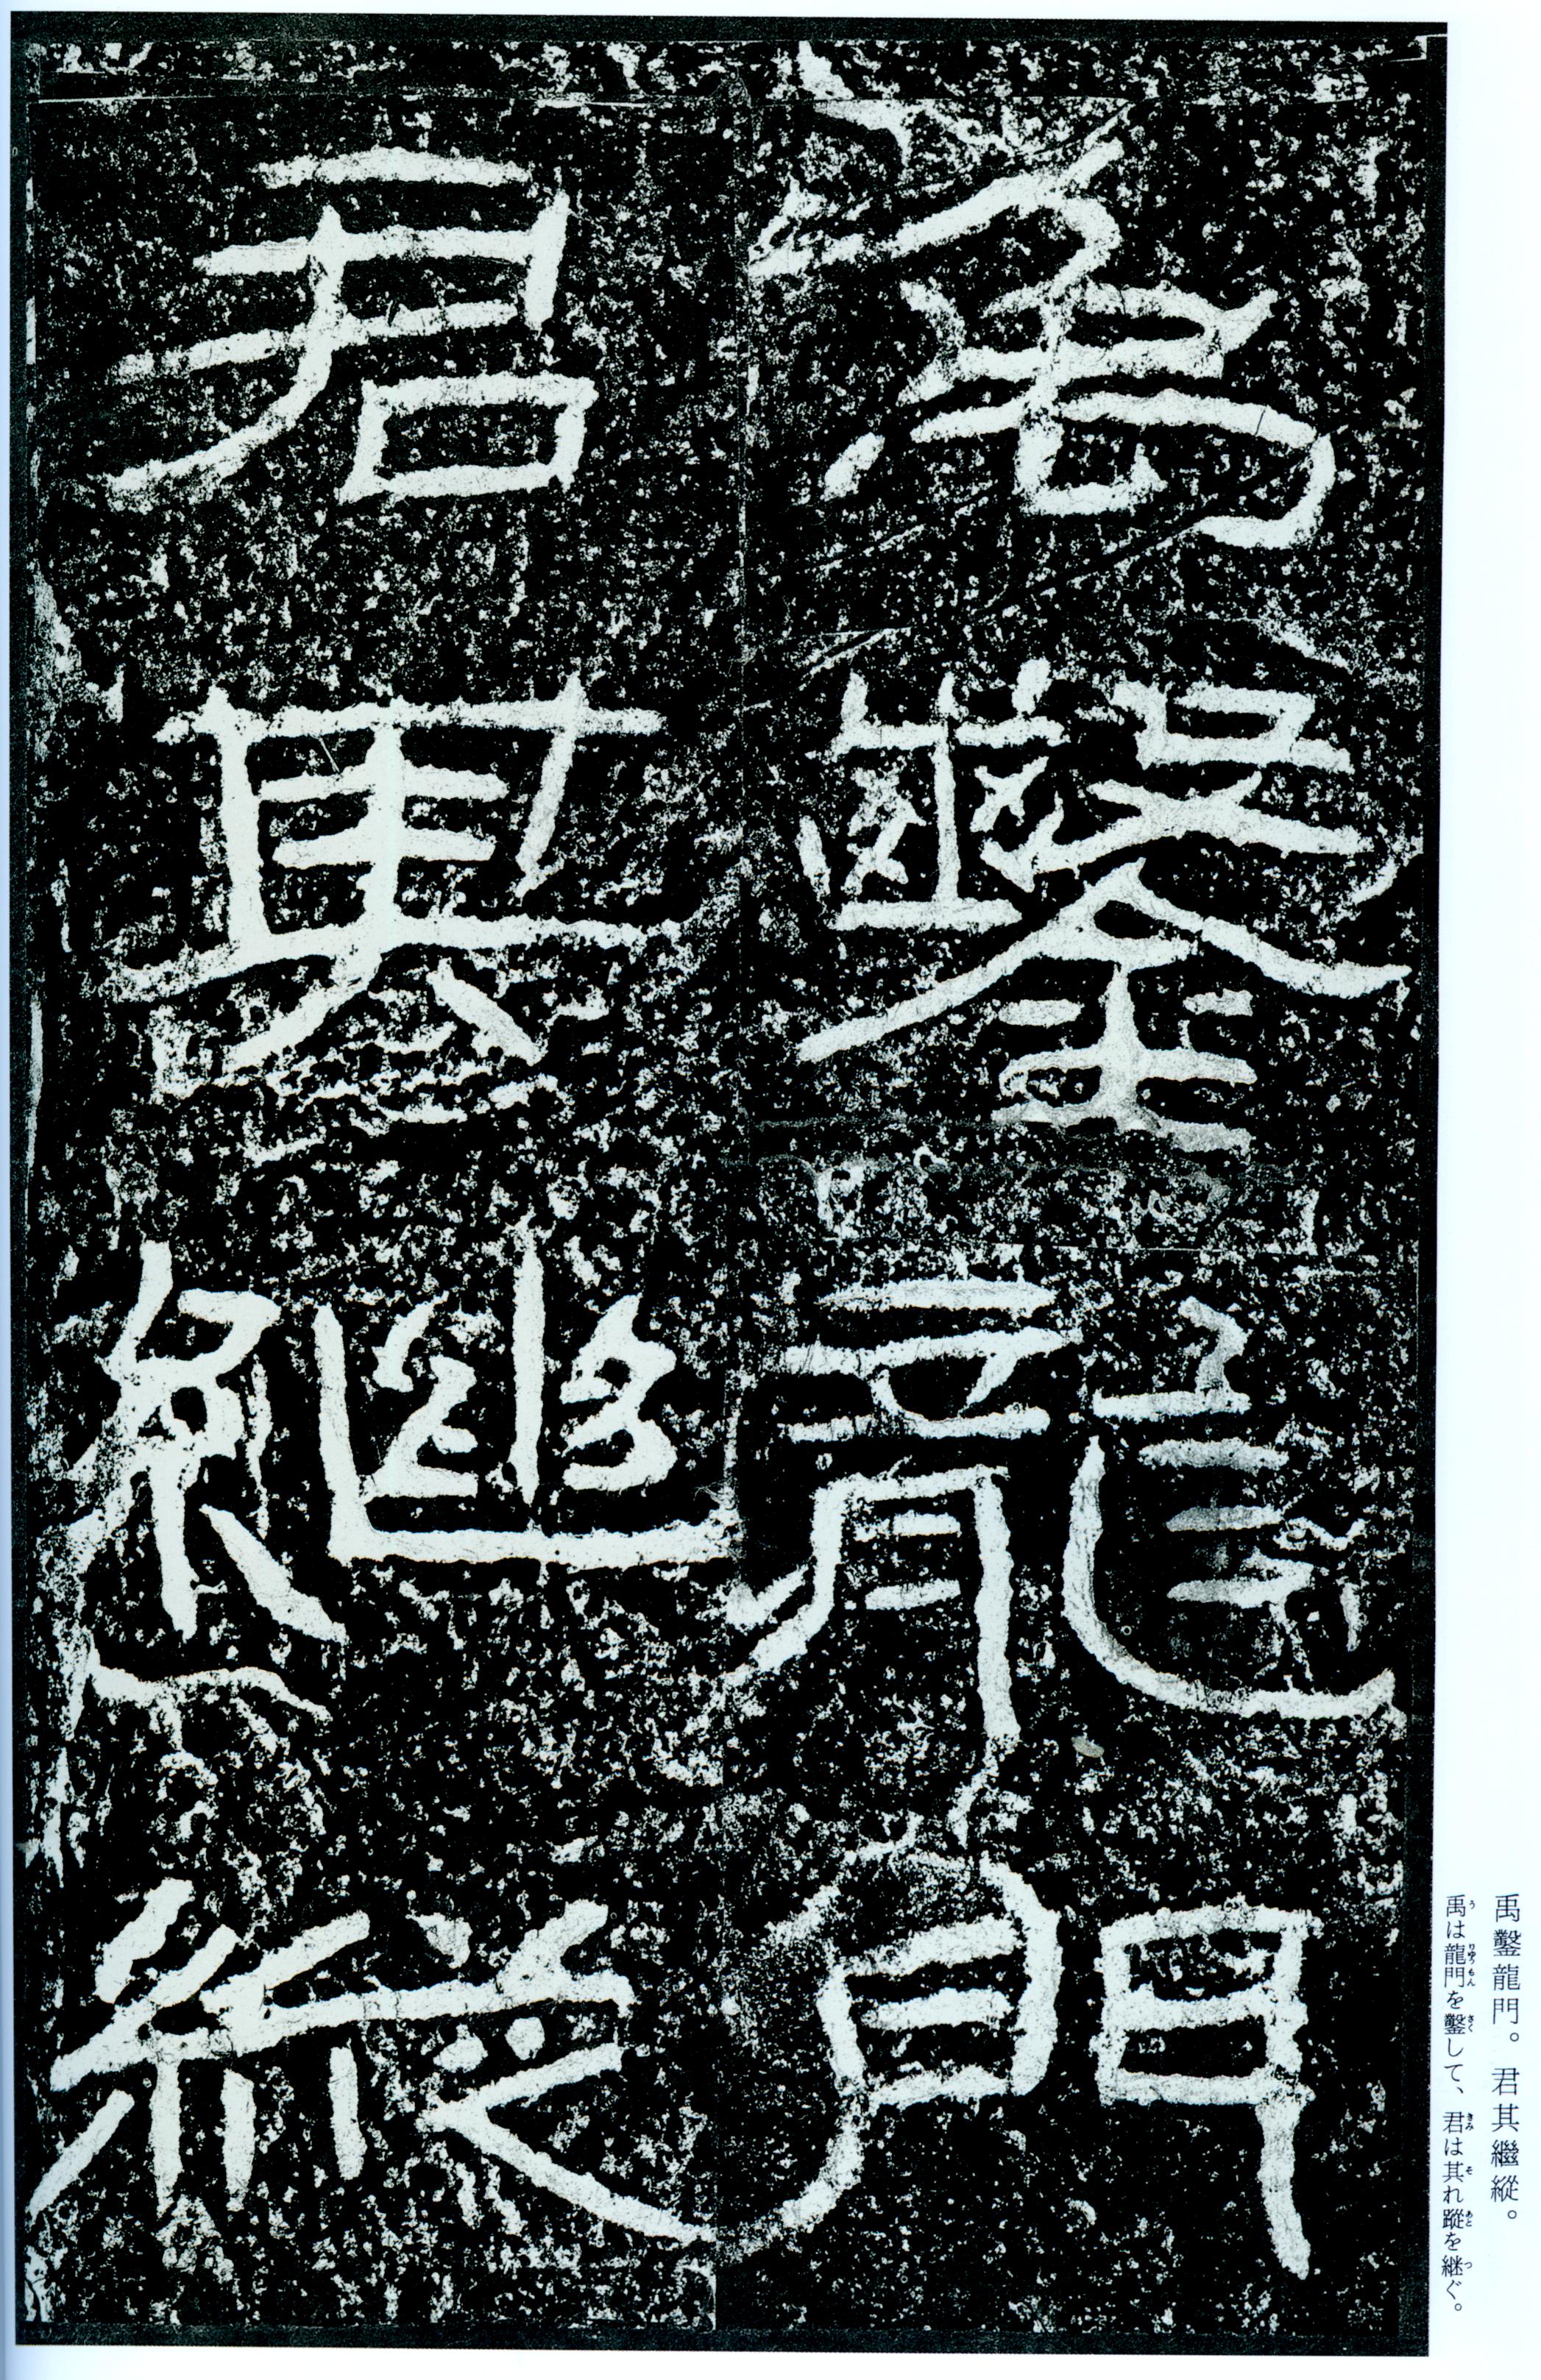 禹鑿龍門
君其繼縱
禹鑿龍門。君其繼縱。
禹は龍門を鑿して、君は其れ蹤を継ぐ。